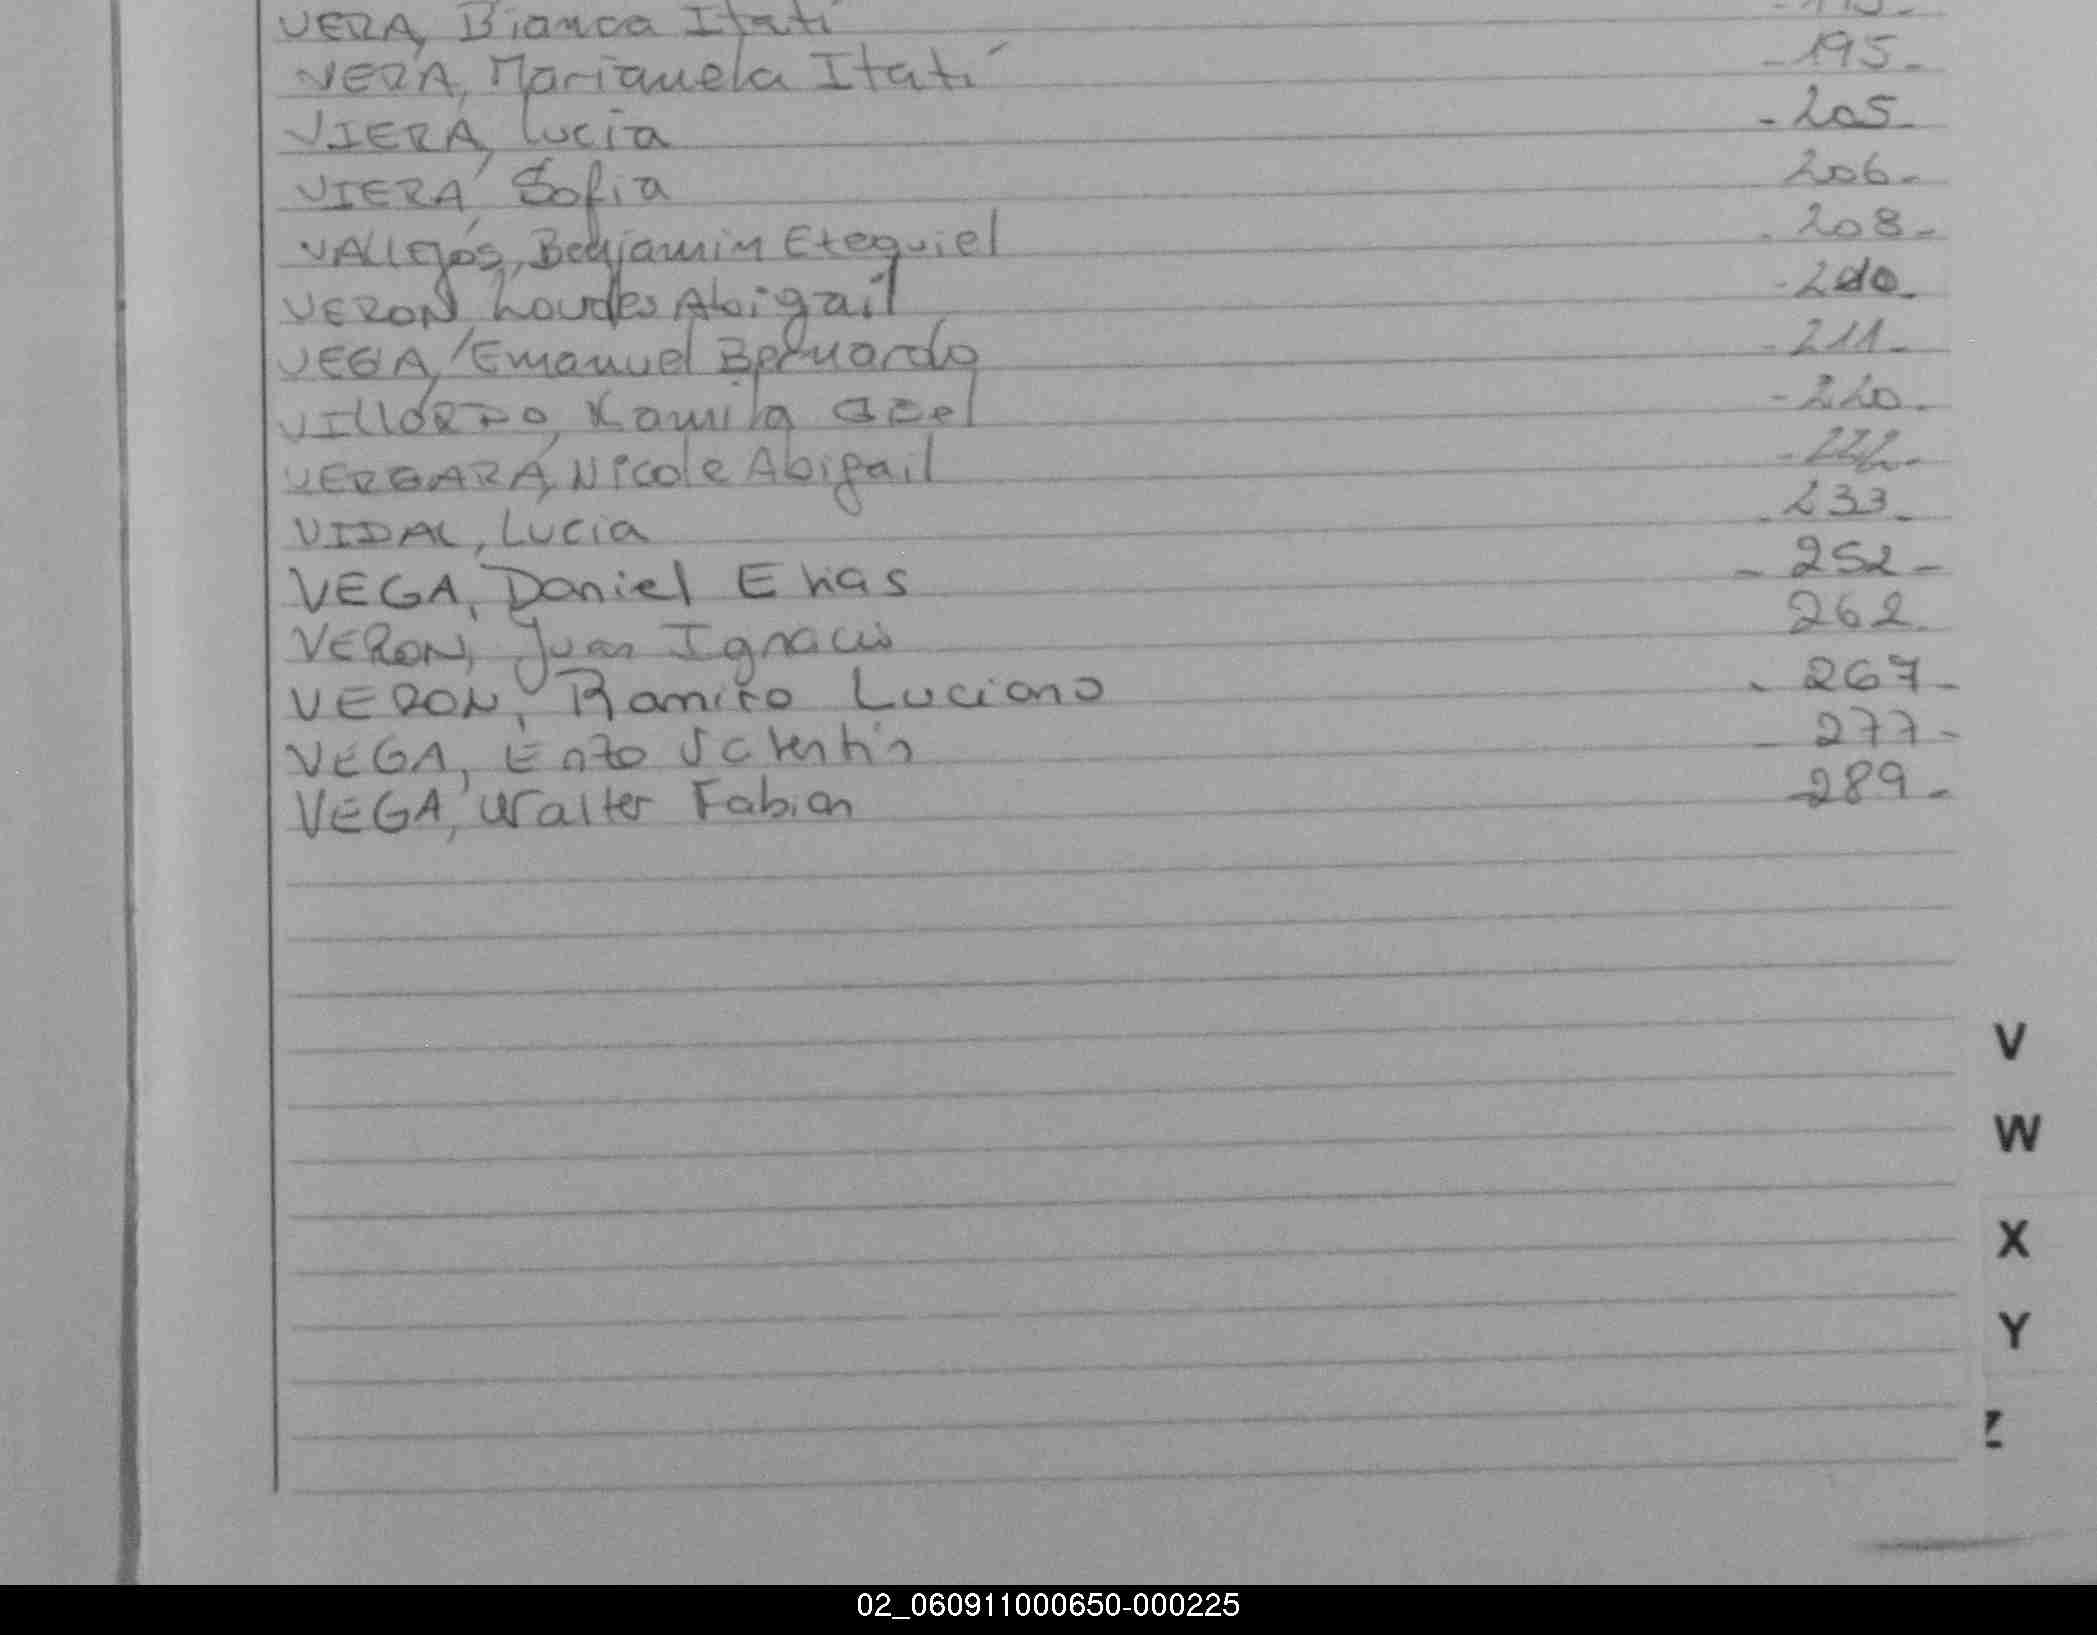 VERA, Bianca Itatí
VERA, Marianela Itatí -195-
VIERA, Lucia -205-
VIERA, Sofia 206-
VALLEJOS, Benjamin Ezequiel 208-
VERON, Lourdes Abigail -210-
VEGA, Emanuel Bernardo -211-
VILLORDO, Kamila -220-
VERGARA, Nicole Abigail
VIDAL, Lucia 233-
VEGA, Daniel Elias - 252 -
VERON, Juan Ignacio 262-
VERON, Ramiro Luciano - 267-
VEGA, Enzo - 277-
VEGA, Walter Fabian -289-
V
W
X
Y
Z
02_060911000650-000225